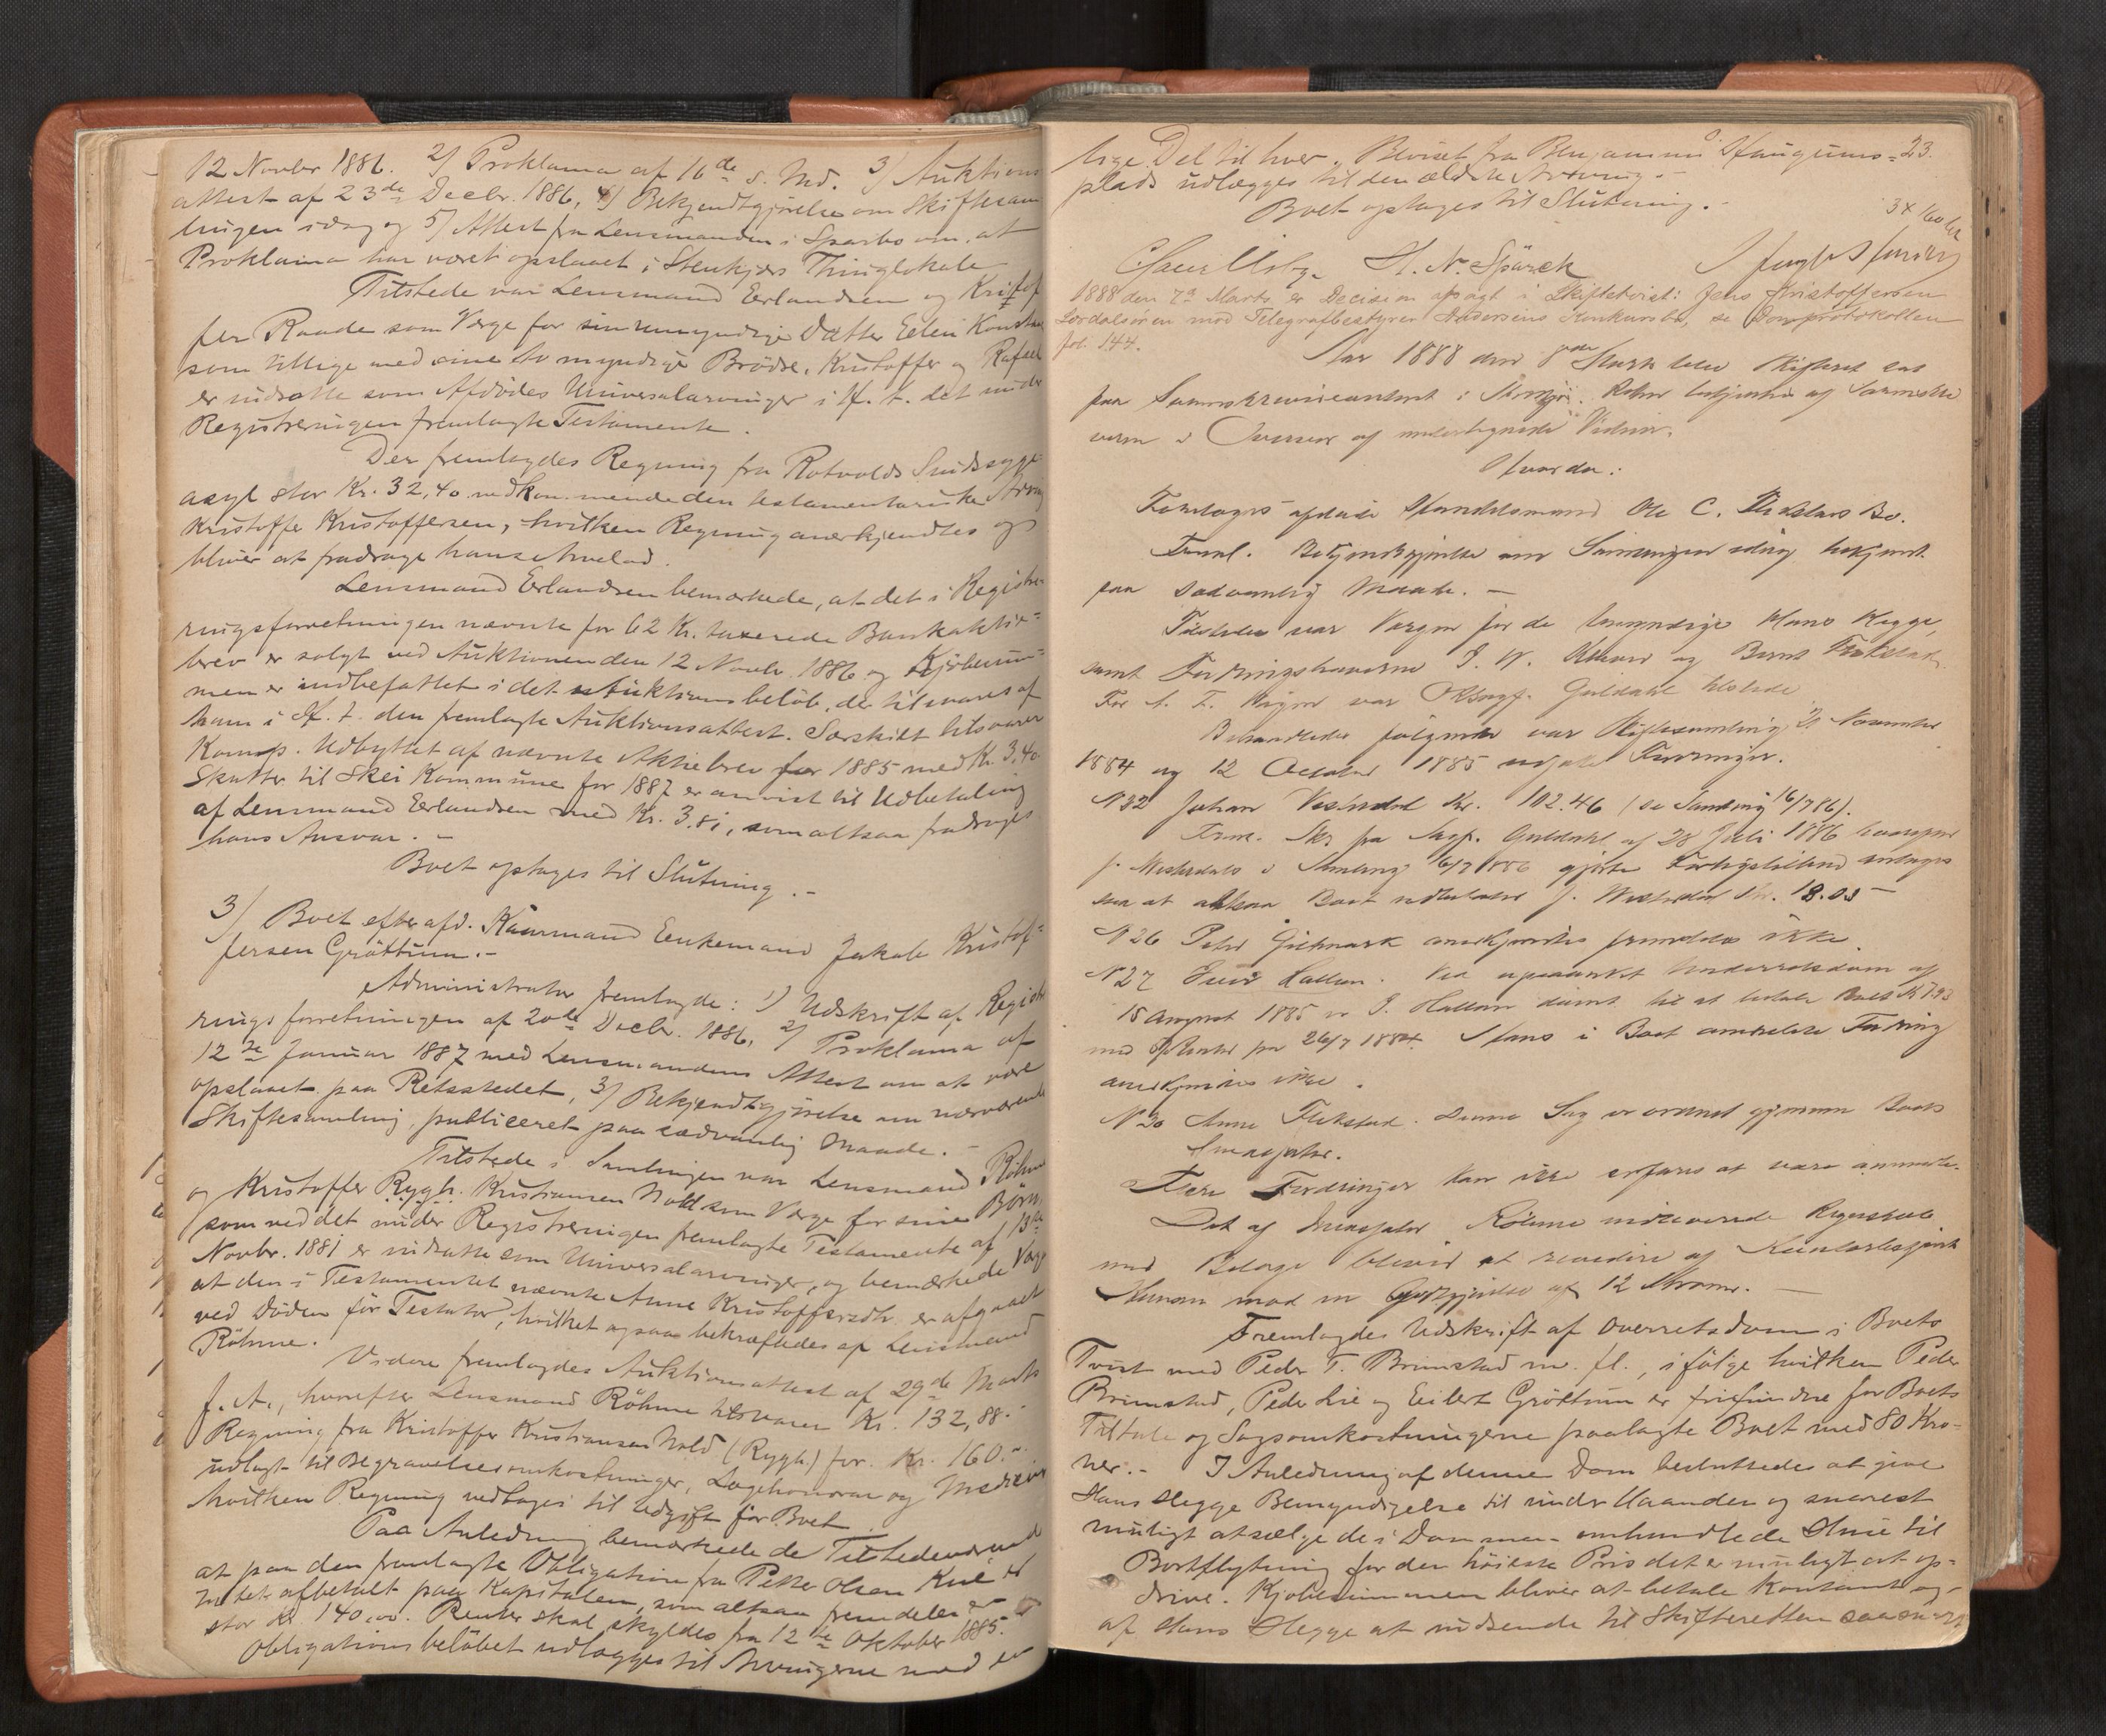 12 Novbr 1886. 2) Proklama af 16de s. Md. 3) Auktions
attest af 23de Decbr. 1886, 4) Bekjendtgjörelse om Skiftesam
lingen idag og 5) Attest fra Lensmanden i Sparbo om, at
Proklama har været opslaaet i Stenkjærs Thinglokale
Tilstede var Lensmand Erlandsen og Kristof
fer Raade som Værge for sin umyndige Datter Eelen
som tillige med sine to myndige Brödre, Kristoffer og Rafael
er indsatte som Afdödes Universalarvinger i H. t. det under
Registreringen fremlagte Testamente.
Der fremlagdes Regning fra Rotvolds Sindssyge-
asyl stor Kr. 32,40 vedkommende den testamentariske Arving
Kristoffer Kristoffersen, hvilken Regning anerkjendtes og
bliver at fradrage hans Arvelod.
Lensmand Erlandsen bemærkede, at det i Registre-
ringsforretningen nævnte for 62 Kr. taxerede Bankaktie-
brev er solgt ved Auktionen den 12 Novbr. 1886 og Kjöbesum-
men er indbefattet i det Auktionsbelöb, der tilsvares af
ham i H. t. den fremlagte Auktionsattest. Særskilt tilsvarer
Komp. Udbyttet af nævnte Aktiebrev for 1885 med Kr. 3,40
Skatter til Skei Kommune for 1887 er anvist til Udbetaling
af Lensmand Erlandsen med Kr. 3.81, som altsaa fradrages
hans Ansvar. -
Boet optages til Slutning. -
3/ Boet efter afd. Kaarmand Enkemand Jakob Kristof-
fersen Gröttum. -
Administrator fremlagde: 1) Udskrift af Registre
ringsforretningen af 20de Decbr. 1886, 2) Proklama af
12te Januar 1887 med Lensmandens Attest om at være
opslaaet paa Retsstedet, 3) Bekjendtgjörelse om nærværende
Skiftesamling, publiceret paa sædvanlig Maade. -
Tilstede i Samlingen var Lensmand Röhme
og Kristoffer Rygh. Kristiansen Hold som Værge for sine Börn
som ved det under Registreringen fremlagte Testamente af 13de
Novbr. 1881 er indsatte som Universalarvinger, og bemærkede Værgen
at den i Testamentet nævnte Anne Kristoffersdtr. er afgaaet
ved Döden för Testator, hvilket ogsaa bekræftedes af Lensmand
Röhme.
Videre fremlagdes Auktionsattest af 29de Marts
f. A., hvorefter Lensmand Röhme tilsvarer Kr. 132,88. -
Regning fra Kristoffer Kristiansen Hold (Rygh) for Kr. 160. -
udlagt til Begravelsesomkostninger, Lægehonorar og Medicin
hvilken Regning vedtages til Udgift for Boet.
Paa Anledning bemærkede de Tilstedeværende
at paa den fremlagte Obligation fra Petter Olsen Kne er
intet afbetalt paa Kapitalen, som altsaa fremdeles er
stor Kr. 140,00. Renter skal skyldes fra 12te Oktober 1885.
Obligationsbelöbet udlægges til Arvingerne med en
lige Del til hver. Beviset fra Benjamin Haugums- 23.
plads udlægges til den ældste Arving. -
Boet optages til Slutning. -
H. N. Spärck
1888 den 7de Marts er Decision afsagt i Skiftetvist: Jens Kristoffersen
mod Telegrafbestyrer Andersens Konkursbo, se Domprotokollen
fol. 144.
Aar 1888 den 8de Marts blev Skifteret sat
paa Sorenskriverkontoret i Retten betjentes af Sorenskri
veren i Overvær af undertegnede Vidner.
Hvorda:
Foretoges afdöde Handelsmand Ole C. Bo.
Freml. Bekjendtgjörelse om Samlingen idag bekjendt
paa sædvanlig Maade. -
Tilstede var Værgen for de umyndige Hans Hegge,
samt Fordringshaverne og Bernt
For A. F. var Guldahl tilstede
Behandledes fölgende var Skiftesamling 21 November
1884 og 12 October 1885 Fordringer.
N 22 Johan Kr. 102.46 (se Samling 16/7 86).
Freml. Skr. fra Guldahl af 28 Juli 1886
i Samling 16/7 1886 gjorte antages
saa at altsaa Boet udbetaler J. Kr. 18.03 -
N 26 Peter anerkjendtes fremdeles ikke.
N 27 Hallem. Ved upaaanket Underretsdom af
15 August 1885 er J. Hallem dömt til at betale Boet
med Renter fra 26/7 1884. Hans i Boet anmeldte Fordring
anerkjendes ikke.
N 30 Anne Denne Sag er ordnet gjennem Boets
Inkassator.
Flere Fordringer kan ikke erfares at være anmeldte.
Det af Inkassator Röhme indleverede Regnskab
med Bilage bliver at revidere af Kontorbetjent
mod en Godtgjörelse af 12 Kroner. -
Fremlagdes Udskrift af Overretsdom i Boets
Tvist med Peder T. Brimstad m. fl., ifölge hvilken Peder
Brimstad, Peder Lie og Eilert Gröttum er frifundne for Boets
Tiltale og Sagsomkostningerne paalagte Boet med 80 Kro-
ner. - I Anledning af denne Dom besluttedes at give
Hans Hegge Bemyndigelse til under Haanden og snarest
muligt at sælge de i Dommen omhandlede Huse til
Bortflytning for den höieste Pris det er muligt at op-
drive. Kjöbesummen bliver at betale kontant og
af Hans Hegge at indsende til Skifteretten saasnart